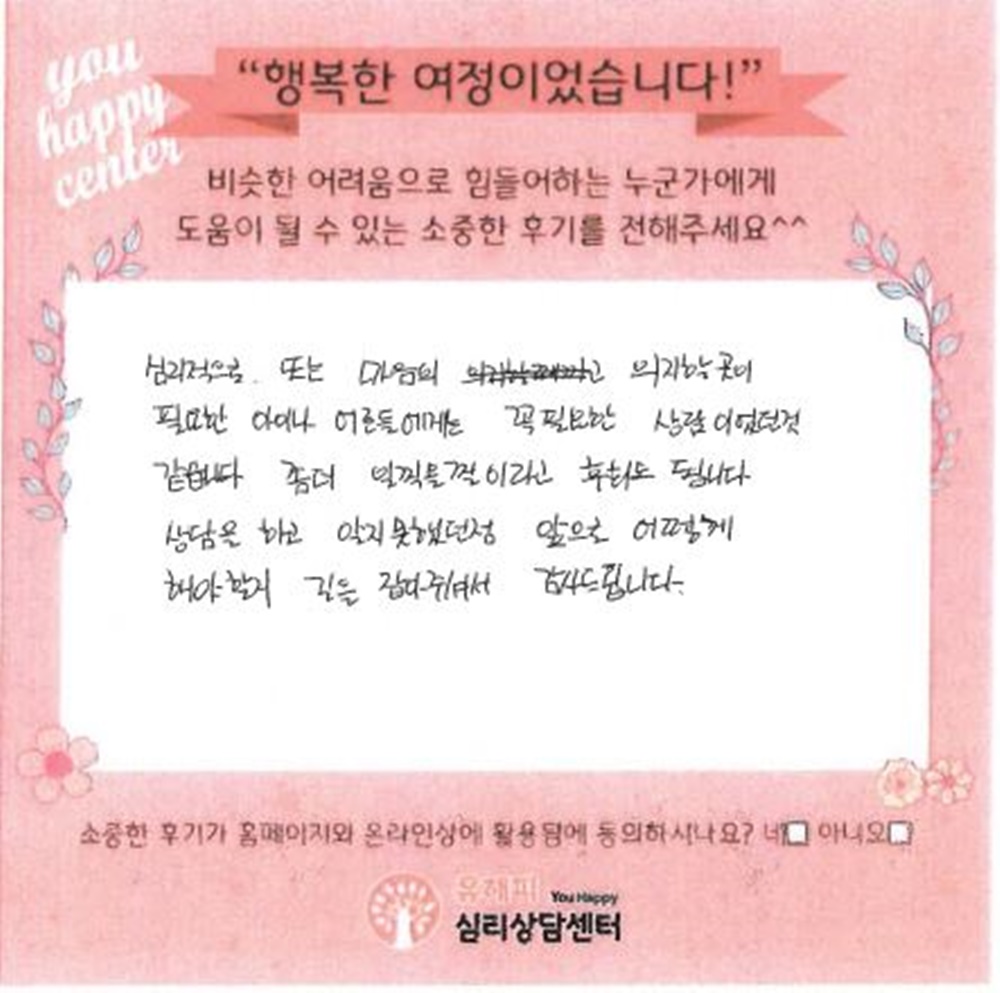 you
happy
center
“행복한 여정이었습니다!”
비슷한 어려움으로 힘들어하는 누군가에게
도움이 될 수 있는 소중한 후기를 전해주세요^^
심리적으로. 또는 마음의 의지할곳이
필요한 아이나 어른들에게는 꼭필요한 상담이었던것
같습니다 좀더 일찍올껄이라고 후회도 됩니다
상담을 하고 알지못했던점 앞으로 어떻게
해야할지 길을 잡아주셔서 감사드립니다.
소중한 후기가 홈페이지와 온라인상에 활용됨에 동의하시나요? 네 아니오
유해피 You Happy
심리상담센터